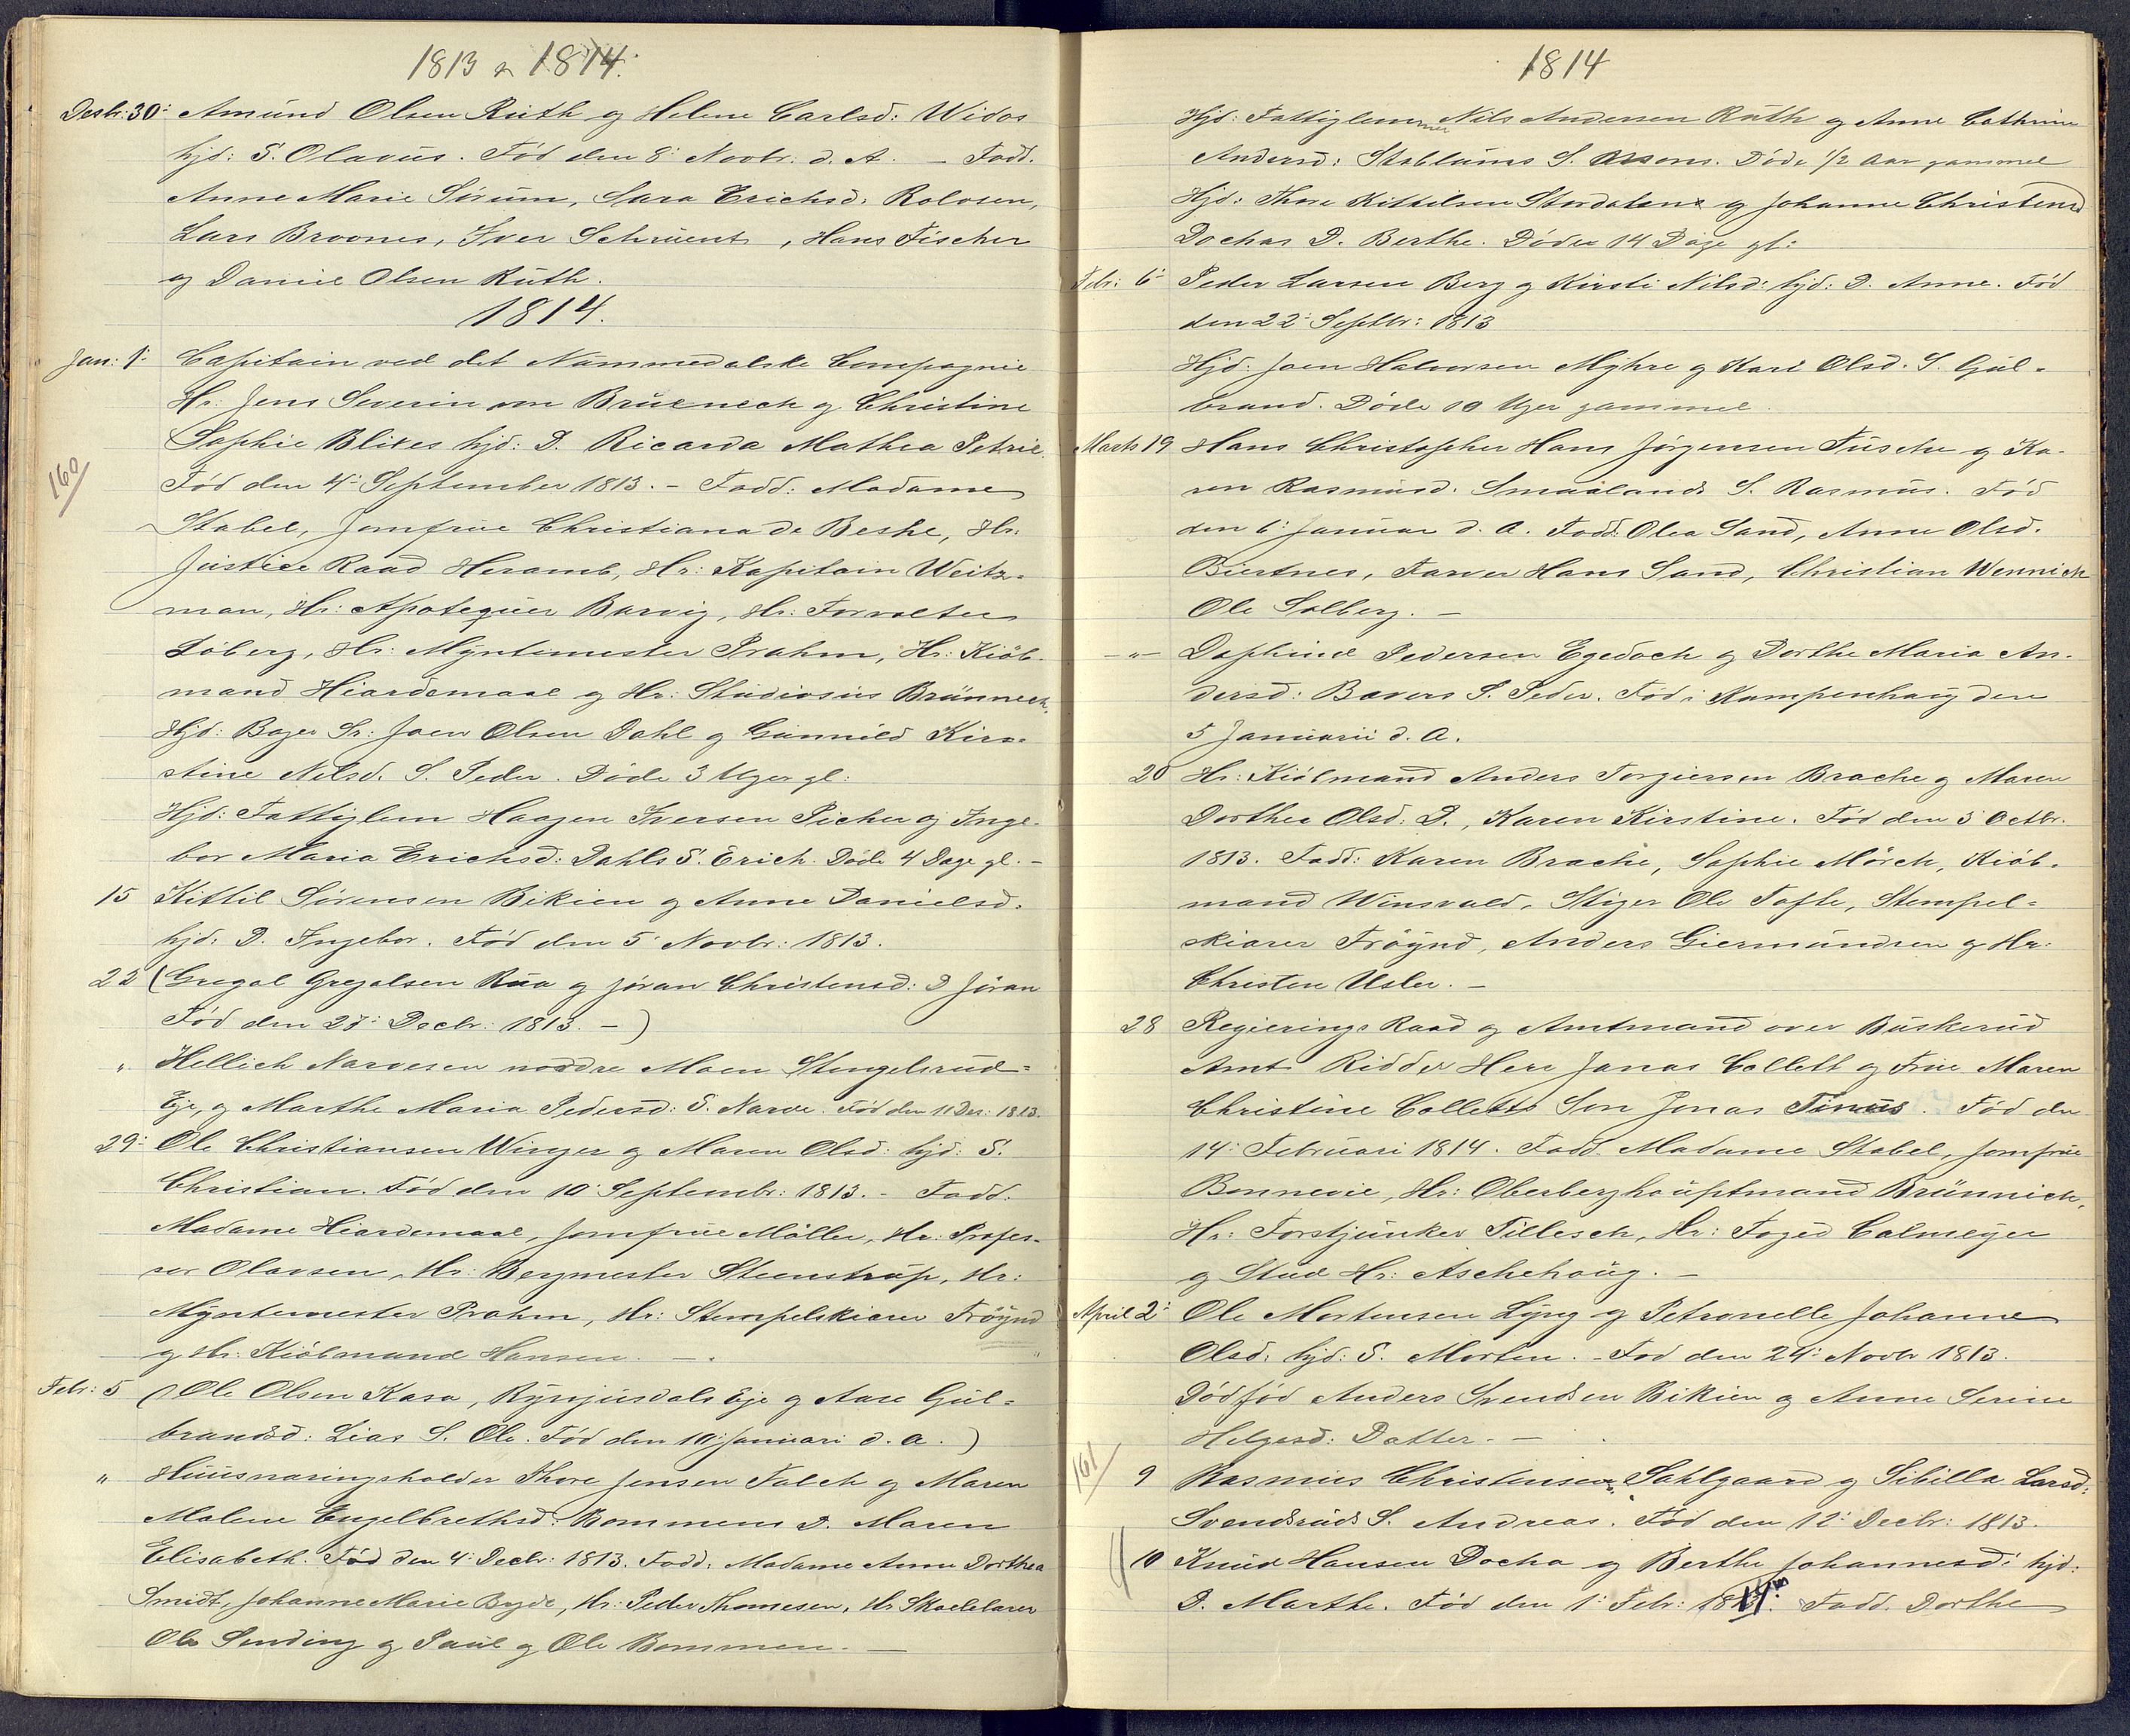 1813 & 1814.
Desbr: 30: Amund Olsen Ruth og Helene Carlsd: Widos
hjd: S. Olavus. Fød den 8: Novbr. d. A. — Fadd.
Anne Marie Sørum, Sara Erichsd: Rolosen,
Lars Broones, Iver Schruents, Hans Fischer
og Daniel Olsen Ruth.
1814.
Jan: 1: Capitain ved det Nummedalske Compagnie
Hr: Jens Severin von Bruenech og Christine
Sophie Blixes hjd: D. Ricarda Mathea Petrie.
160
Fød den 4: September 1813. - Fadd: Madame
Stabel, Jomfrue Christiana de Beshe, Hr.
Justice Raad Heramb, Hr: Kapitain Weitz-
man, Hr: Apotequer Barvig, Hr: Forvalter
Løberg, Hr: Myntemester Prahm, Hr: Kiøb-
mand Hiardemaal og Hr: Studiosus Brünnech.
Hjd: Bager Sr: Joen Olsen Dahl og Gunnild Kir-
stine Nilsd. S. Peder. Døde 3 Uger gl:
Hjd: Fattiglem Haagen Iversen Picher og Inge-
bor Maria Erichsd: Dahls S. Erich. Døde 4 Dage gl. -
15 Kittil Sørensen Bikien og Anne Danielsd.
hjd: D. Ingebor. Fød den 5: Novbr: 1813.
22 (Gregal Gregalsen Rua og Jøran Christensd: D Jøran
Fød den 27: Decbr: 1813. —)
" Hellich Narvesen nordre Moen Stengelsrud-
Eje, og Marthe Maria Pedersd: S. Narve. Fød den 11 Des: 1813.
29: Ole Christiansen Winger og Maren Olsd: hjd: S.
Christian. Fød den 10: Septembr: 1813. - Fadd:
Madame Hiardemaal, Jomfrue Møller, Hr: Profes-
sor Olavsen, Hr: Bergmester Steenstrup, Hr:
Myntemester Prahm, Hr: Stempelskiærer Frøynd
og Hr: Kiøbmand Hansen. —.
Febr: 5 (Ole Olsen Kasa, Rynjusdals Eje og Aase Gul-
brandsd: Lias S. Ole. Fød den 10: Januari d. a.)
" Huusnæringsholder Thore Jensen Falch og Maren
Malene Engelbrethsd: Bommens D. Maren
Elisabeth. Fød den 4: Decbr: 1813. Fadd: Madame Anne Dorthea
Smidt, Johanne Marie Byde, Hr: Peder Thomesen, Hr Skoelelærer
Ole Sending og Paul og Ole Bommen. —
1814
Hjd: Fattiglemmer Nils Andersen Ruth og Anne Cathrine
Andersd: Stablums S. Assens. Døde 1/2 Aar gammel
Hjd: Thore Kittilsen Stordalen og Johanne Christensd
Dochas D. Berthe. Døde 14 Dage gl:
Febr: 6: Peder Larsen Berg og Kirsti Nilsd: hjd: D. Anne. Fød
den 22: Septbr: 1813
Hjd: Joen Halvorsen Myhre og Kari Olsd. S. Gul-
brand. Døde 10 Uger gammel.
Marts 19 Hans Christopher Hans Jørgensen Fusche og Ka-
ren Rasmusd. Smaalands S. Rasmus. Fød
den 6: Januar d. A. Fadd: Olea Sand, Anne Olsd.
Biertnes, Farver Hans Sand, Christian Wennich
Ole Solberg. —
—"— Daphinel Pedersen Egedoch og Dorthe Maria An-
dersd: Bavers S. Peder. Fød i Kampenhaug den
5 Januarii d. A.
20 Hr: Kiøbmand Anders Torgiersen Brache og Maren
Dorthea Olsd: D., Karen Kirstine. Fød den 5 Octbr.
1813. Fadd: Karen Brache, Sophie Mörch, Kiöb-
mand Winsvald, Stiger Ole Tofte, Stempel-
skiærer Frøynd, Anders Giermundsen og Hr:
Christen Usler. —
28 Regierings Raad og Amtmand over Buskerud
Amt Ridder Herr Jonas Collett og Frue Maren
Christine Colletts Søn Jonas Tinus. Fød den
14: Februari 1814. Fadd. Madame Stabel, Jomfrue
Bonnevie, Hr: Oberberghauptmand Brünnich,
Hr: Forstjunker Tillesch, Hr: Foged Calmeyer
og Stud Hr: Aschehoug. —
April 2: Ole Mortensen Lyng og Petronelle Johanne
Olsd: hjd: S. Morten. - Fød den 24: Novbr 1813.
Dødfød Anders Svendsen Bikien og Anne Serine
Helgesd: Datter. —
161
9 Rasmus Christensen Sahlgaard og Sibilla Larsd:
Svendsruds S. Andreas. Fød den 12: Decbr: 1813.
10 Knud Hansen Docha og Berthe Johannesd: hjd:
D. Marthe. Fød den 1: Febr: 1814. Fadd. Dorthe